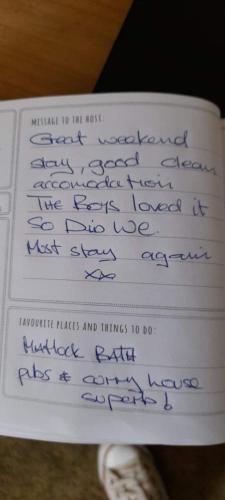 MESSAGE TO THE HOST:
Great weekend
stay, good clean
accomodation
THE Boys loved it
So Did We.
Most stay again
xxx
FAVOURITE PLACES AND THINGS TO DO:
Matlock BATH
pubs & curry house
superb!